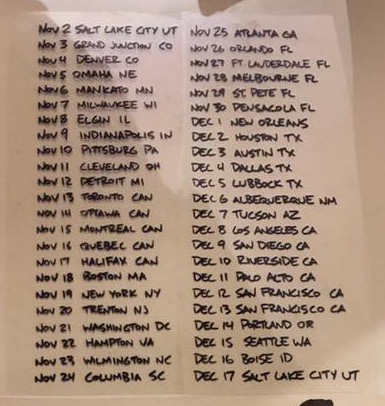 NOV 2 SALT LAKE CITY UT
NOV 3 GRAND JUNCTION CO
NOV 4 DENVER CO
NOV 5 OMAHA NE
NOV 6 MANKATO MN
NOV 7 MILWAUKEE WI
NOV 8 ELGIN IL
NOV 9 INDIANAPOLIS IN
NOV 10 PITTSBURG PA
NOV 11 CLEVELAND OH
NOV 12 DETROIT MI
NOV 13 TORONTO CAN
NOV 14 OTTAWA CAN
NOV 15 MONTREAL CAN
NOV 16 QUEBEC CAN
NOV 17 HALIFAX CAN
NOV 18 BOSTON MA
NOV 19 NEW YORK NY
NOV 20 TRENTON NJ
NOV 21 WASHINGTON DC
NOV 22 HAMPTON VA
NOV 23 WILMINGTON NC
NOV 24 COLUMBIA SC
NOV 25 ATLANTA GA
NOV 26 ORLANDO FL
NOV 27 FT. LAUDERDALE FL
NOV 28 MELBOURNE FL
NOV 29 ST. PETE FL
NOV 30 PENSACOLA FL
DEC 1 NEW ORLEANS
DEC 2 HOUSTON TX
DEC 3 AUSTIN TX
DEC 4 DALLAS TX
DEC 5 LUBBOCK TX
DEC 6 ALBEQUERQUE NM
DEC 7 TUCSON AZ
DEC 8 LOS ANGELES CA
DEC 9 SAN DIEGO CA
DEC 10 RIVERSIDE CA
DEC 11 PALO ALTO CA
DEC 12 SAN FRANCISCO CA
DEC 13 SAN FRANCISCO CA
DEC 14 PORTLAND OR
DEC 15 SEATTLE WA
DEC 16 BOISE ID
DEC 17 SALT LAKE CITY UT